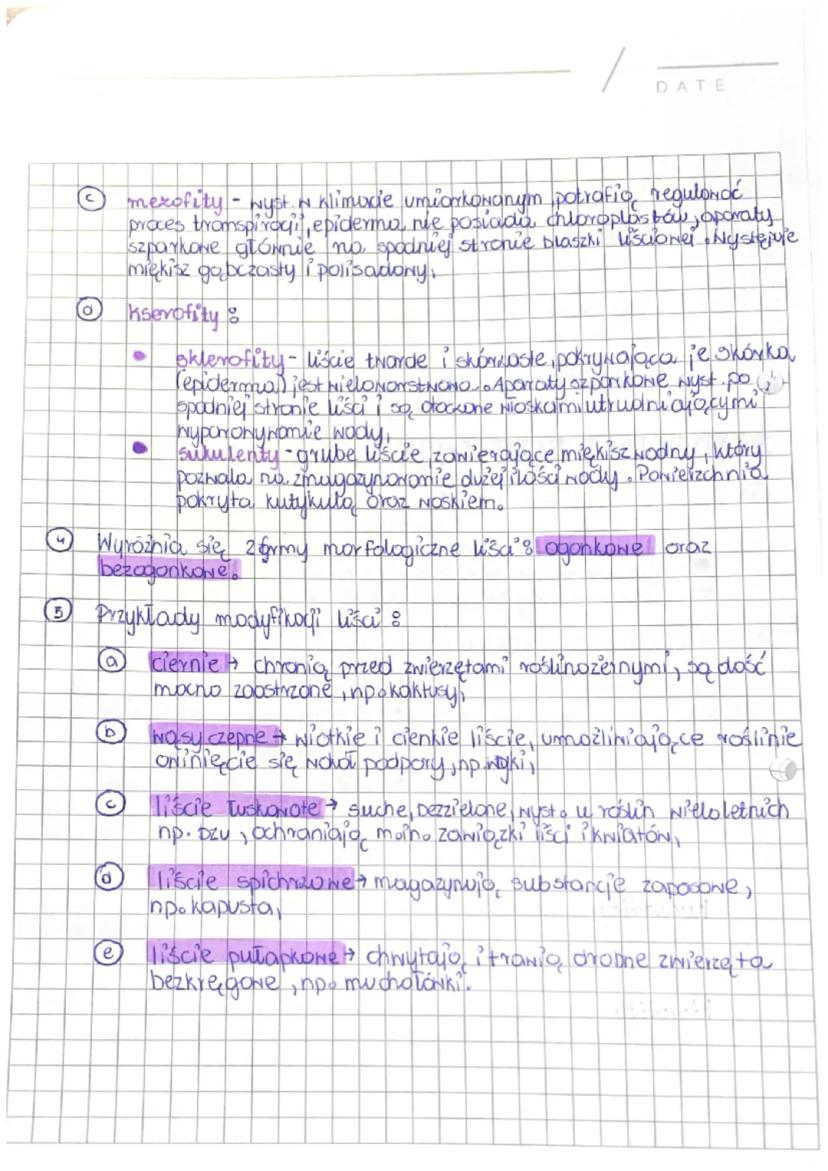 / DATE
c mezofity - wyst. w klimacie umiarkowanym, potrafią regulować
proces transpiracji, epiderma nie posiada chloroplastów, aparaty
szparkowe głównie na spodniej stronie blaszki liściowej. Występuje
miękisz gąbczasty i palisadowy,
d kserofity:
• sklerofity - liście twarde i skórzaste, pokrywająca je skórka
(epiderma) jest wielowarstwowa. Aparaty szparkowe wyst. po
spodniej stronie liści i są otoczone włoskami utrudniającymi
wyparowywanie wody,
• sukulenty - grube liście, zawierające miękisz wodny, który
pozwala na zmagazynowanie dużej ilości wody. Powierzchnia
pokryta kutykulą oraz woskiem.
4 Wyróżnia się 2 formy morfologiczne liści: ogonkowe oraz
bezogonkowe.
5 Przykłady modyfikacji liści:
a ciernie → chronią przed zwierzętami roślinożernymi, są dość
mocno zaostrzone, np. kaktusy,
b wąsy czepne → wiotkie i cienkie liście, umożliwiające roślinie
owinięcie się wokół podpory, np. wyki,
c liście łuskowate → suche, bezzielone, wyst. u roślin wieloletnich
np. bzu, ochraniają zawiązki liści i kwiatów,
d liście spichrzowe → magazynują substancje zapasowe,
np. kapusta,
e liście pułapkowe → chwytają i trawią drobne zwierzęta
bezkręgowe, np. muchołówki.